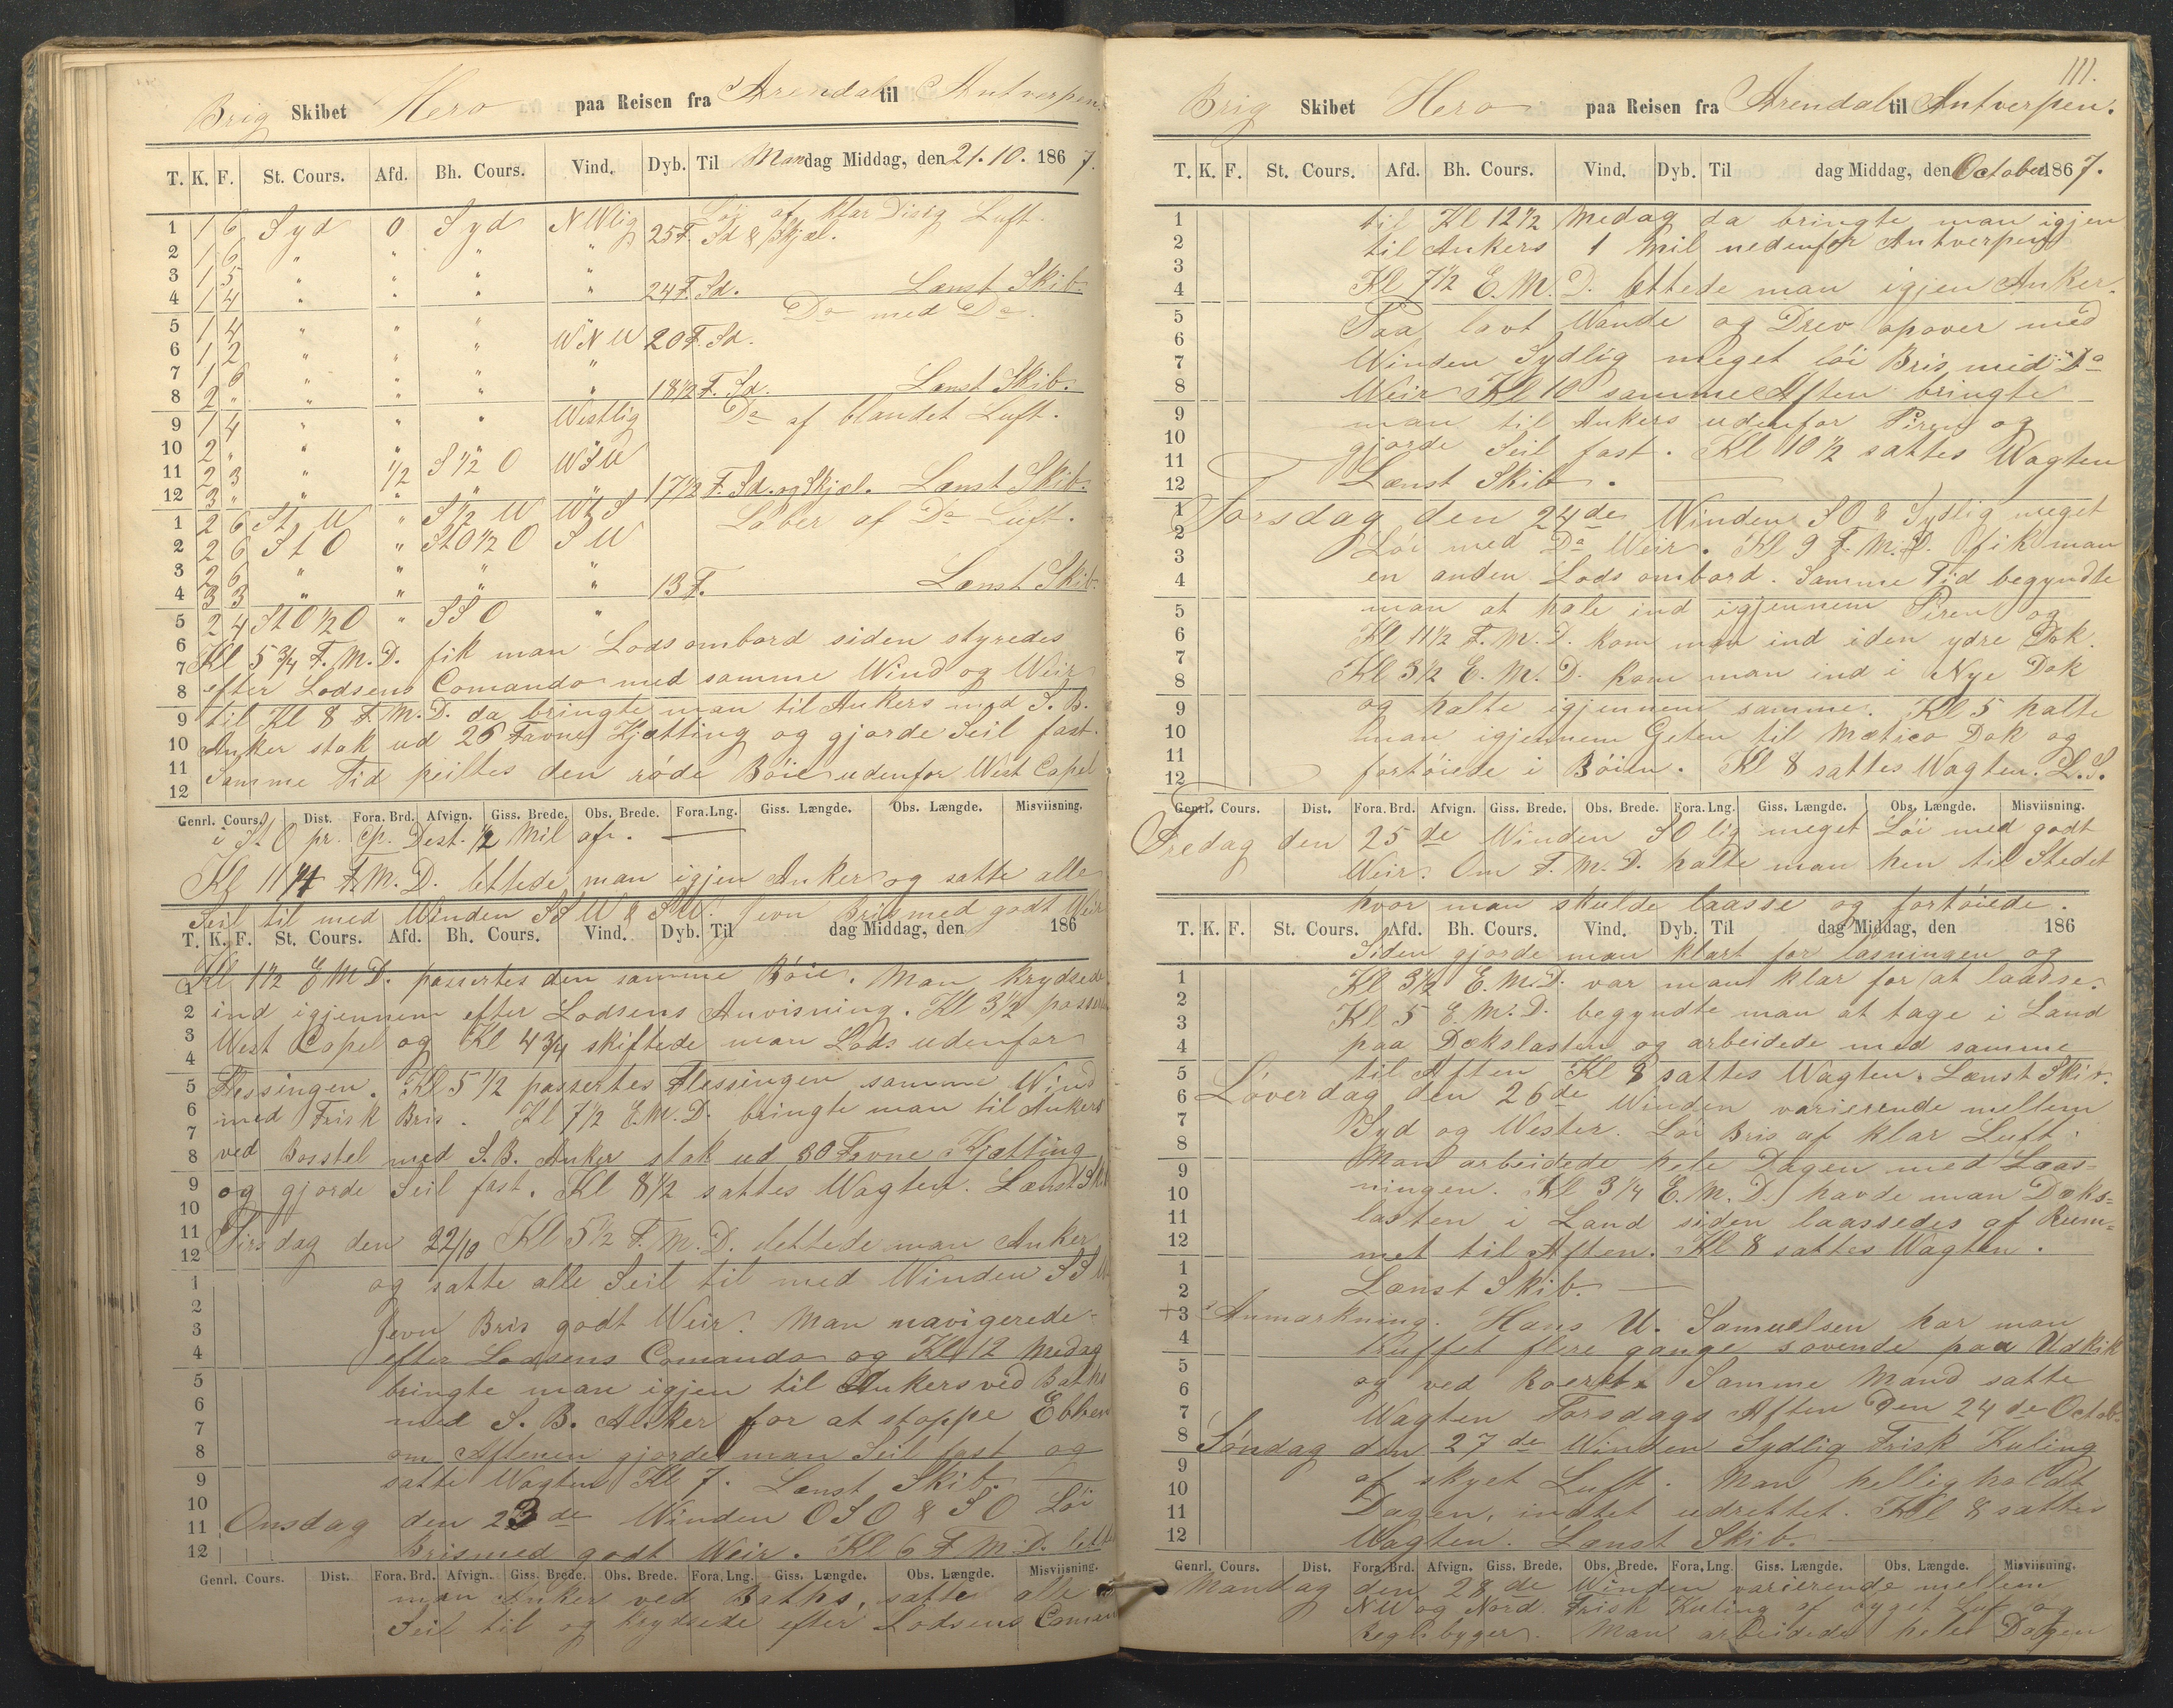 Brig Skibet Hero paa Reisen fra Arendal til Antverpen
T. K. F. St. Cours. Afd. Bh. Cours. Vind. Dyb. Til Mandag Middag, den 21.10. 1867.
1 1 6 Syd 0 Syd NWlig Löi af klar Disig Luft.
25 F. Sd & Skjæl.
2 1 6 " " " "
3 1 5 " " " "
4 1 4 " " " " 24 F. Sd. Lænst Skib.
Do med Do.
5 1 4 " " "
6 1 2 " " " WNW 20 F. Sd.
7 1 6 " " " "
8 2 " " " " " 18 1/2 F. Sd. Lænst Skib.
9 1 4 " " " Westlig Do af blandet Luft.
10 2 " " " "
11 2 3 " 1/2 S 1/2 O WSW
12 3 " " " " " 17 1/2 F. Sd. og Skjæl. Lænst Skib.
1 2 6 St W " S 1/2 W WtS Laber af Do Luft.
2 2 6 St O " StO 1/2 O SW
3 2 6 " " " "
4 3 3 " " " " 13 F. Lænst Skib
5 2 4 StO 1/2 O " SSO "
6 Kl 5 3/4 F.M.D. fik man Lods ombord siden styredes
7 efter Lodsens Comando med samme Wind og Weir
8 til Kl 8 F.M.D. da bringte man til Ankers med S.B.
9 Anker stak ud 26 Favne Kjætting og gjorde Seil fast.
10
11 Samme Tid peiltes den röde Böie udenfor West Capel
12
Genrl. Cours. Dist. Fora. Brd. Afvign. Giss. Brede. Obs. Brede. Fora. Lng. Giss. Længde. Obs. Længde. Misviisning.
i StO pr. Cp. Dest. 1/2 Mil af.
Kl 11 F.M.D. lettede man igjen Anker og satte alle
Seil til med Winden SSW & SW. Jevn Bris med godt Weir
T. K. F. St. Cours. Afd. Bh. Cours. Vind. Dyb. Til dag Middag, den 186
Kl 1 1/2 E.M.D. passertes den samme Böie. Man krydsede
1
2 ind igjennem efter Lodsens Anvisning. Kl 3 1/2 passert
3 West Capel og Kl 4 3/4 skiftede man Lods udenfor
4
5 Flessingen. Kl 5 1/2 passertes Flessingen samme Wind
6 med Frisk Bris. Kl 7 1/2 E.M.D. bringte man til Ankers
7
8 ved Bosstel med S.B. Anker stak ud 30 Favne Kjætting
9 og gjorde Seil fast. Kl 8 1/2 sattes Wagten. Lænst Skib
10
11 Tirsdag den 22/10 Kl 5 1/2 F.M.D. lettede man Anker
12
1 og satte alle Seil til med Winden SSW
2
3 Jevn Bris godt Weir. Man navigerede
4 efter Lodsens Comando og Kl 12 Medag
5 bringte man igjen til Ankers ved Baths
6
7 med S.B. Anker for at stoppe Ebben
8 om Aftenen gjorde man Seil fast og
9 satte Wagten Kl 7. Lænst Skib.
10
11 Onsdag den 23de Winden OSO & SO Löi
12 Bris med godt Weir. Kl 6 F.M.D. lettede
Genrl. Cours. Dist. Fora. Brd. Afvign. Giss. Brede. Obs. Brede. Fora. Lng. Giss. Længde. Obs. Længde. Misviisning.
man Anker ved Baths, satte alle
Seil til og krydsede efter Lodsens Coman
111.
Brig Skibet Hero paa Reisen fra Arendal til Antverpen.
T. K. F. St. Cours. Afd. Bh. Cours. Vind. Dyb. Til dag Middag, den October 1867.
1 til Kl 12 1/2 Medag da bringte man igjen
2 til Ankers 1 Mil nedenfor Antverpen
3
4 Kl 7 1/2 E.M.D. lettede man igjen Anker.
5 Paa lavt Wande og Drev opover med
6
7 Winden Sydlig meget löi Bris med Do
8 Weir. Kl 10 samme Aften bringte
9 man til Ankers udenfor Piren og
10 gjorde Seil fast. Kl 10 1/2 sattes Wagten
11
12 Lænst Skib.
1 Torsdag den 24de Winden SO & Sydlig meget
2 Löi med Do Weir. Kl 9 F.M.D. fik man
3
4 en anden Lods ombord. Samme Tid begyndte
5 man at hale ind igjennem Piren og
6 Kl 11 1/2 F.M.D. kom man ind i den ydre Dok.
7
8 Kl 3 1/2 E.M.D. kom man ind i Nye Dok
9 og halte igjennem samme. Kl 5 halte
10 man igjennem Geten til Mætico Dok og
11
12 fortöiede i Böien. Kl 8 sattes Wagten. L.S.
Genrl. Cours. Dist. Fora. Brd. Afvign. Giss. Brede. Obs. Brede. Fora. Lng. Giss. Længde. Obs. Længde. Misviisning.
Fredag den 25de Winden SO lig meget Löi med godt
Weir. Om F.M.D. halte man hen til Stedet
hvor man skulde laasse og fortöiede.
T. K. F. St. Cours. Afd. Bh. Cours. Vind. Dyb. Til dag Middag, den 186
Siden gjorde man klart for losningen og
1 Kl 3 1/2 E.M.D. var man klar for at laasse.
2
3 Kl 5 E.M.D. begyndte man at tage i Land
4 paa Dækslasten og arbeidede med samme
5 til Aften Kl 8 sattes Wagten. Lænst Skib.
6 Löverdag den 26de Winden varierende mellem
7 Syd og Wester. Löi Bris af klar Luft.
8
9 Man arbeidede hele Dagen med Laas-
10 ningen. Kl 3 1/4 E.M.D. havde man Dæks-
11 lasten i Land siden laassedes af Rum-
12 met til Aften. Kl 8 sattes Wagten.
1
2 Lænst Skib.
+3 Anmarkning. Hans U. Samuelsen har man
4 truffet flere gange sovende paa Udkik
5
6 og ved Roeret. Samme Mand satte
7 Wagten Torsdags Aften Den 24de Octob.
8 Söndag den 27de Winden Sydlig Frisk Kuling
9
10 af skyet Luft. Man helligholdt
11 Dagen, intet udrettet. Kl 8 sattes
12 Wagten. Lænst Skib.
Genrl. Cours. Dist. Fora. Brd. Afvign. Giss. Brede. Obs. Brede. Fora. Lng. Giss. Længde. Obs. Længde. Misviisning.
Mandag den 28de Winden varierende mellem
NW og Nord Frisk Kuling af byget Luft og
Regnbyger. Man arbeidede hele Dagen